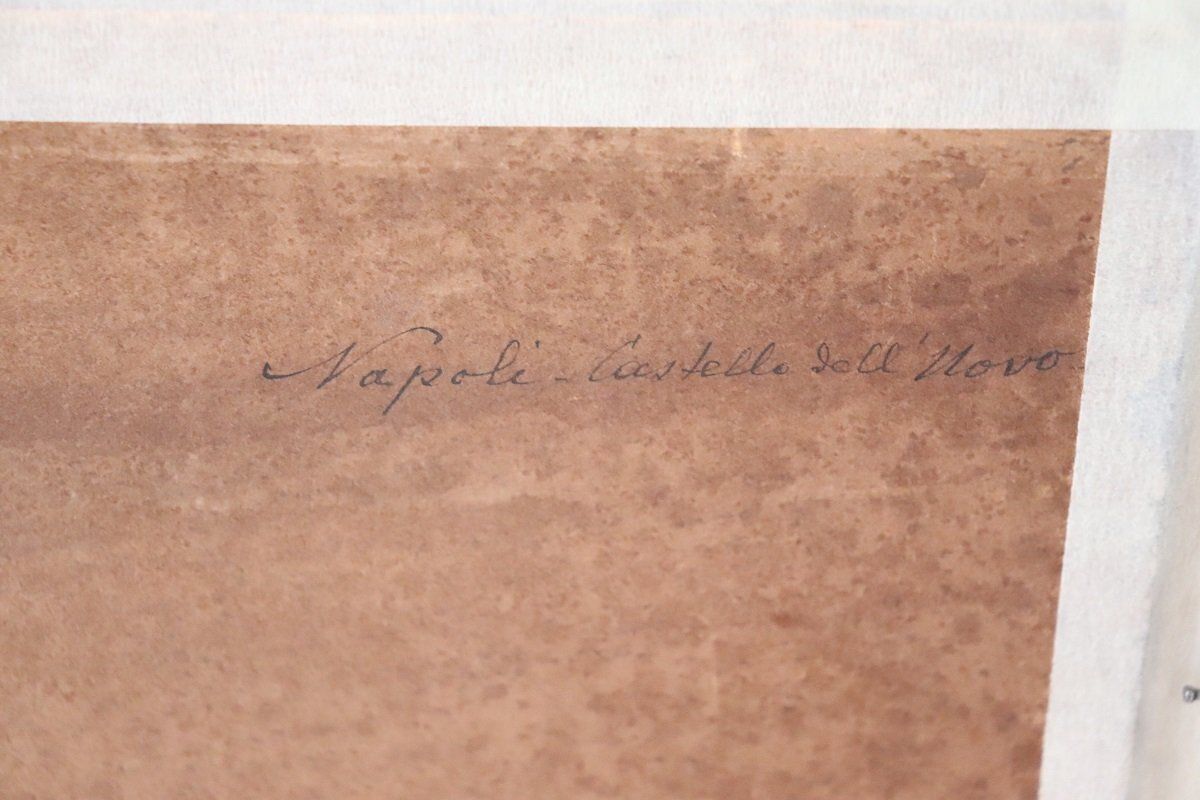 Napoli - Castello dell' Novo -